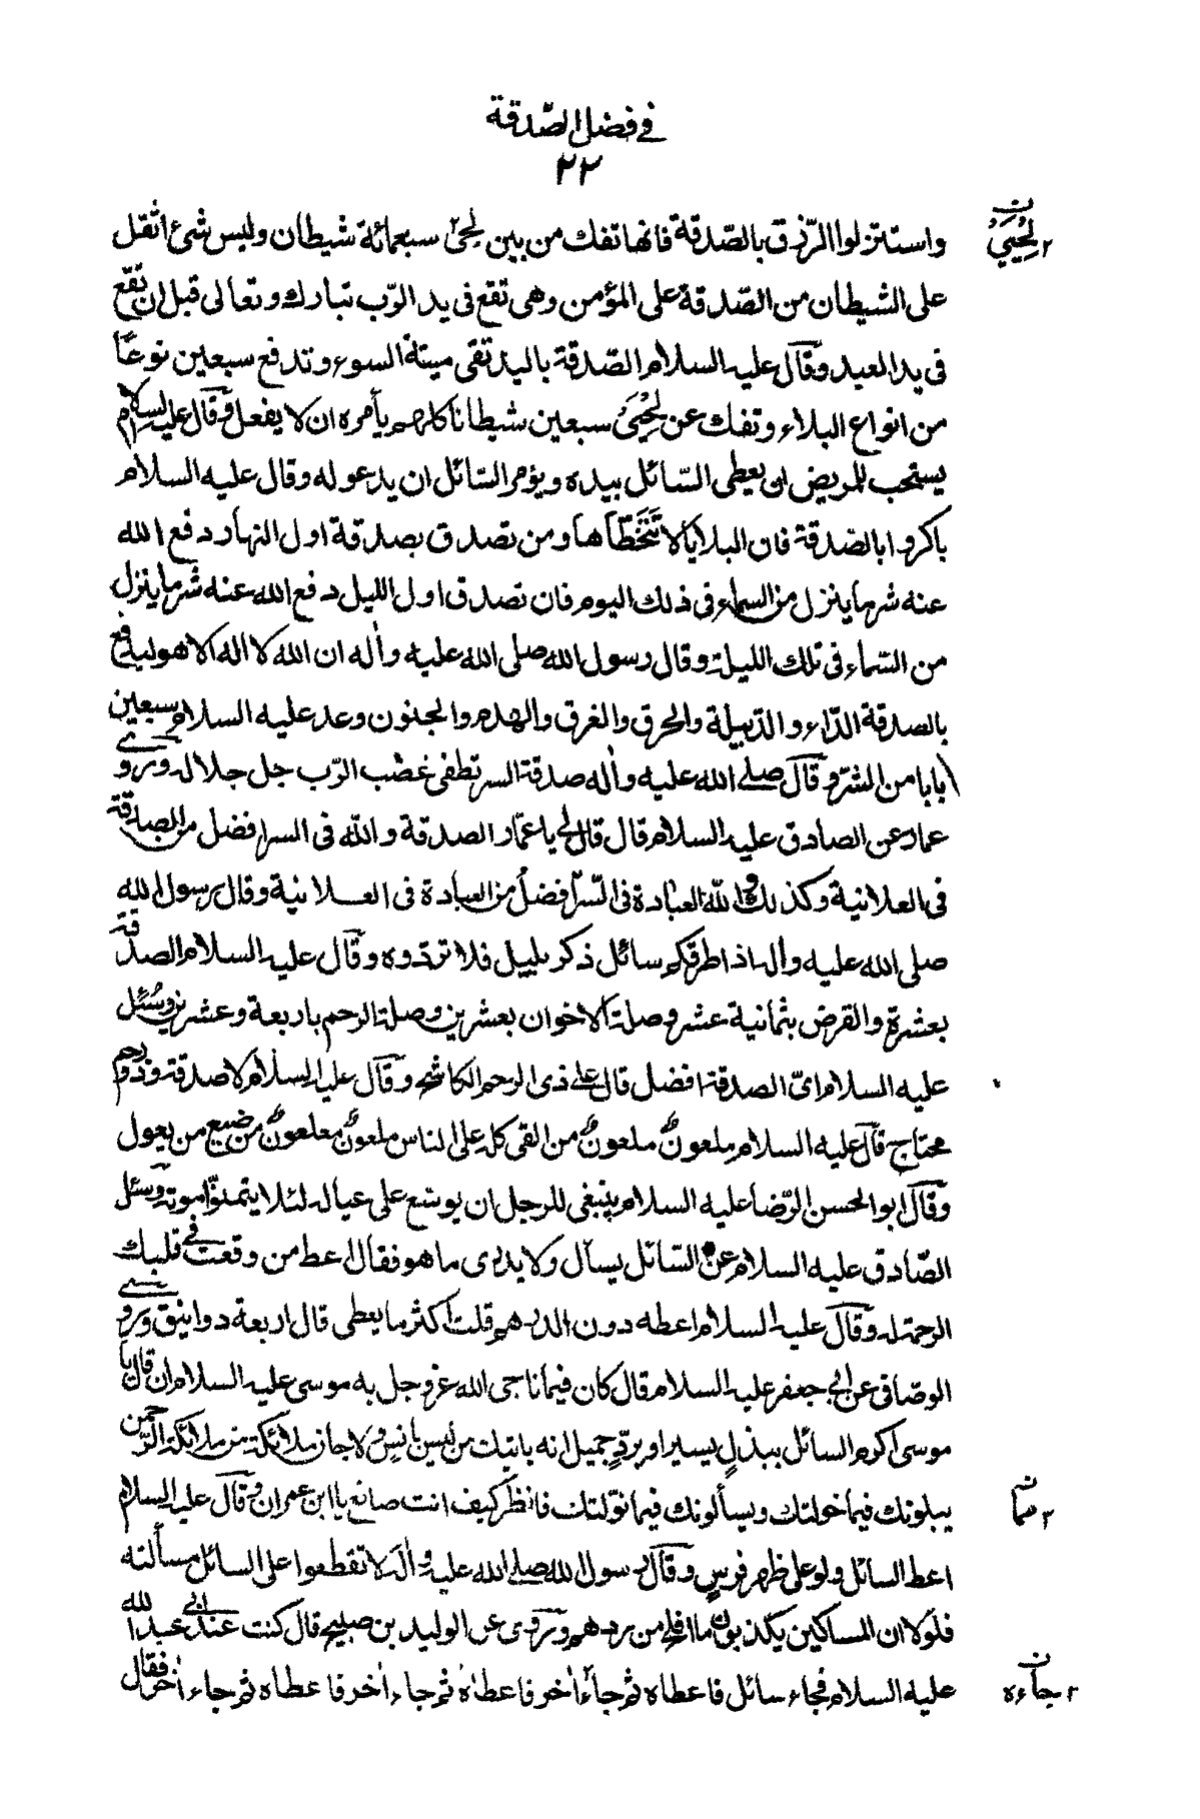 في فضل الصّدقة
٢٢
واستنزلوا الرّزق بالصّدقة فانها تفك من بين لحيى سبعمائة شيطان وليس شئ اثقل
٢ لِحْيَيْ ن
على الشيطان من الصّدقة على المؤمن وهى تقع فى يد الرّب تبارك وتعالى قبل ان تقع
فى يد العبد وقال عليه السلام الصّدقة باليد تقى ميتة السوء وتدفع سبعين نوعًا
من انواع البلاء وتفك عن لِحْيَىْ سبعين شيطانا كلهم يأمره ان لا يفعل وقال عليه السلام
يستحب للمريض ان يعطى السّائل بيده ويؤمر السّائل ان يدعو له وقال عليه السلام
باكروا بالصّدقة فان البلايا لا تَتَخَطّاها ومن تصدق بصدقة اول النهار دفع الله
عنه شر ما ينزل من السماء فى ذلك اليوم فان تصدق اول الليل دفع الله عنه شر ما ينزل
من السّماء فى تلك الليلة وقال رسول الله صلى الله عليه وآله ان الله لا اله الا هو ليدفع
بالصدقة الدّاء والدّبيلة والحرق والغرق والهدم والجنون وعد عليه السلام سبعين
بابا من الشرّ وقال صلى الله عليه وآله صدقة السر تطفى غضب الرّب جل جلاله وروى
عمار عن الصادق عليه السلام قال قال لى يا عمّار الصدقة والله فى السر افضل من الصدقة
فى العلانية وكذلك والله العبادة فى السّر افضل من العبادة فى العلانية وقال رسول الله
صلى الله عليه وآله اذا طرقكم سائل ذكر بليل فلا تردّوه وقال عليه السلام الصدقة
بعشرة والقرض بثمانية عشر وصلة الاخوان بعشرين وصلة الرحم باربعة وعشرين وسُئل
عليه السلام اىّ الصدقة افضل قال على ذى الرحم الكاشح وقال عليه السلام لا صدقة وذو رحم
محتاج قال عليه السلام ملعونٌ ملعونٌ من القى كله على الناس ملعونٌ ملعونٌ من ضيع من يعول
وقال ابو الحسن الرّضا عليه السلام ينبغى للرجل ان يوسّع على عياله لئلا يتمنوّا موته وسئل
الصّادق عليه السلام عن السّائل يسأل ولا يدرى ما هو فقال اعط من وقعت فى قلبك
الرحمة له وقال عليه السلام اعطه دون الدرهم قلت اكثر ما يعطى قال اربعة دوانيق وروى
الوصّافى عن ابى جعفر عليه السلام قال كان فيما ناجى الله عز وجل به موسى عليه السلام ان قال يا
موسى اكرم السائل ببذلٍ يسير او بردّ جميل انه ياتيك من ليس بانسٍ ولا جان ملائكة من ملائكة الرّحمن
يبلونك فيما خولتك ويسألونك فيما نوّلتك فانظر كيف انت صانع يا ابن عمران وقال عليه السلام
اعط السائل ولو على ظهر فرسٍ وقال رسول الله صلى الله عليه وآله لا تقطعوا على السائل مسألته
فلولا ان المساكين يكذبون ما افلح من ردهم وروى عن الوليد بن صبيح قال كنت عند ابى عبد الله
عليه السلام فجاء سائل فاعطاه ثم جاء آخر فاعطاه ثم جاء آخر فاعطاه ثم جاء آخر فقال
٢ جاءه ن